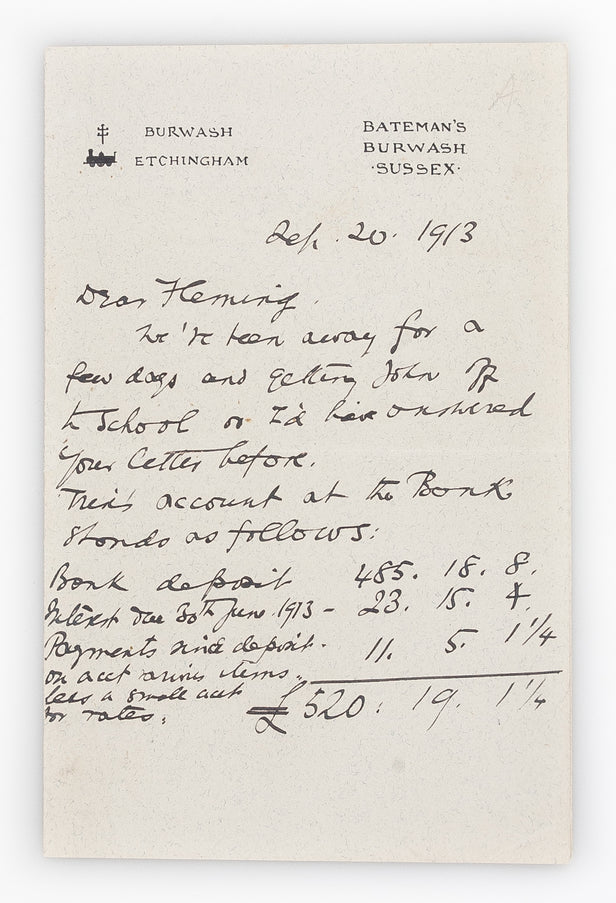 BURWASH
ETCHINGHAM
BATEMAN'S
BURWASH
·SUSSEX·
Sep. 20. 1913
Dear Fleming.
We've been away for a
few days and getting John off
to School or I'd have answered
your letter before.
Trix's account at the Bank
stands as follows:
Bank deposit 485. 18. 8.
Interest due 30th June 1913 - 23. 15. 4.
Payments since deposit. 11. 5. 1 1/4
on acct various items.
less a small acct
for rates. £520. 19. 1 1/4